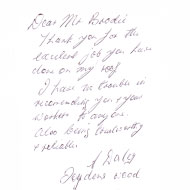 Dear Mr Boodie
Thank you for the
excellent job you have
done on my roof
I have no trouble in
recommending you & your
workers to anyone
Also being trustworthy
& reliable.
Daley